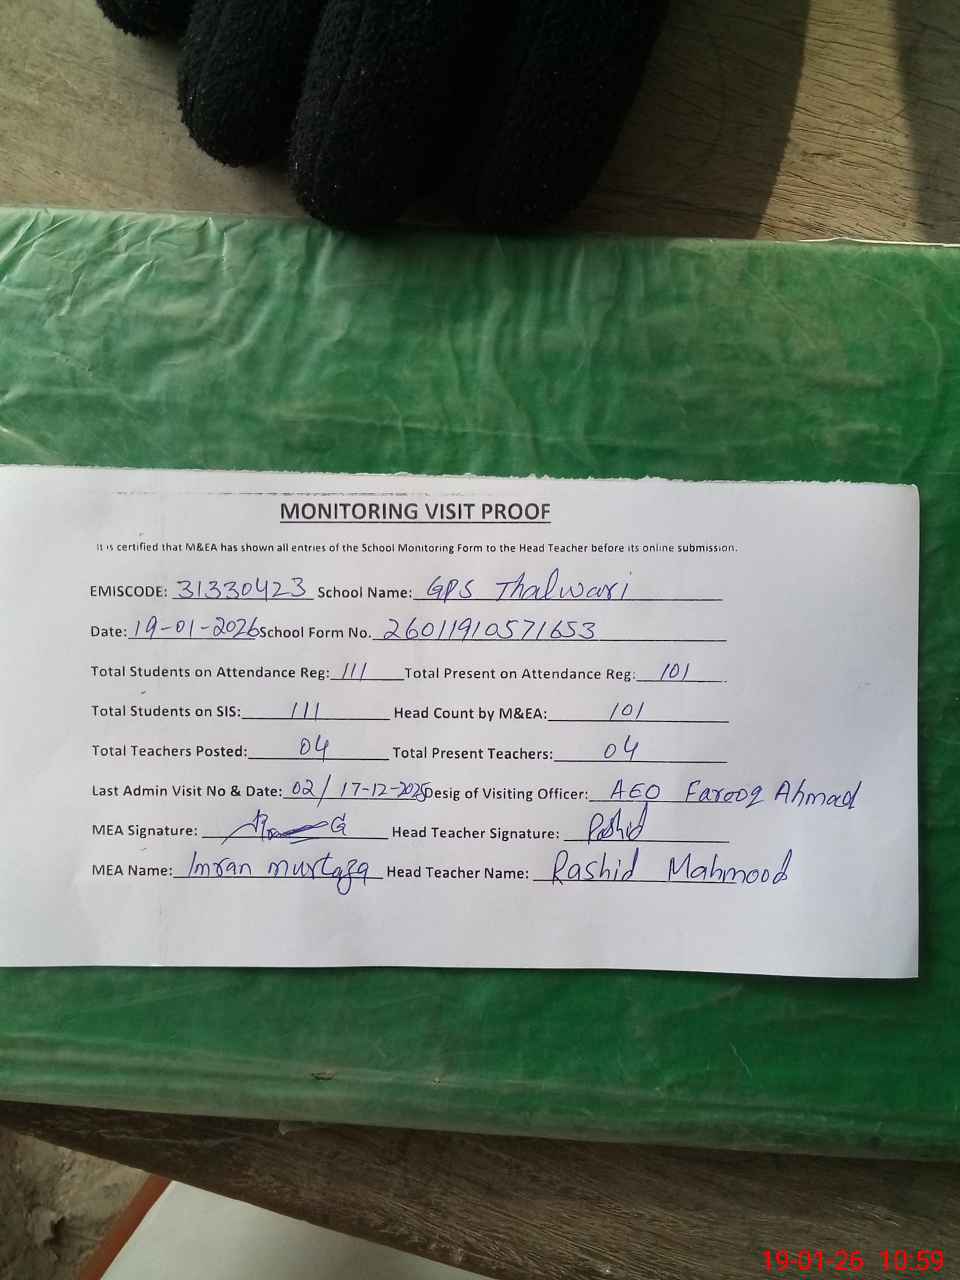 MONITORING VISIT PROOF
It is certified that M&EA has shown all entries of the School Monitoring Form to the Head Teacher before its online submission.
EMISCODE: 31330423 School Name: GPS Thalwari
Date: 19-01-2026 School Form No. 26011910571653
Total Students on Attendance Reg: 111 Total Present on Attendance Reg: 101
Total Students on SIS: 111 Head Count by M&EA: 101
Total Teachers Posted: 04 Total Present Teachers: 04
Last Admin Visit No & Date: 02/ 17-12-2025 Desig of Visiting Officer: AEO Farooq Ahmad
MEA Signature: Head Teacher Signature: Rashid
MEA Name: Imran murtaza Head Teacher Name: Rashid Mahmood
19-01-26 10:59